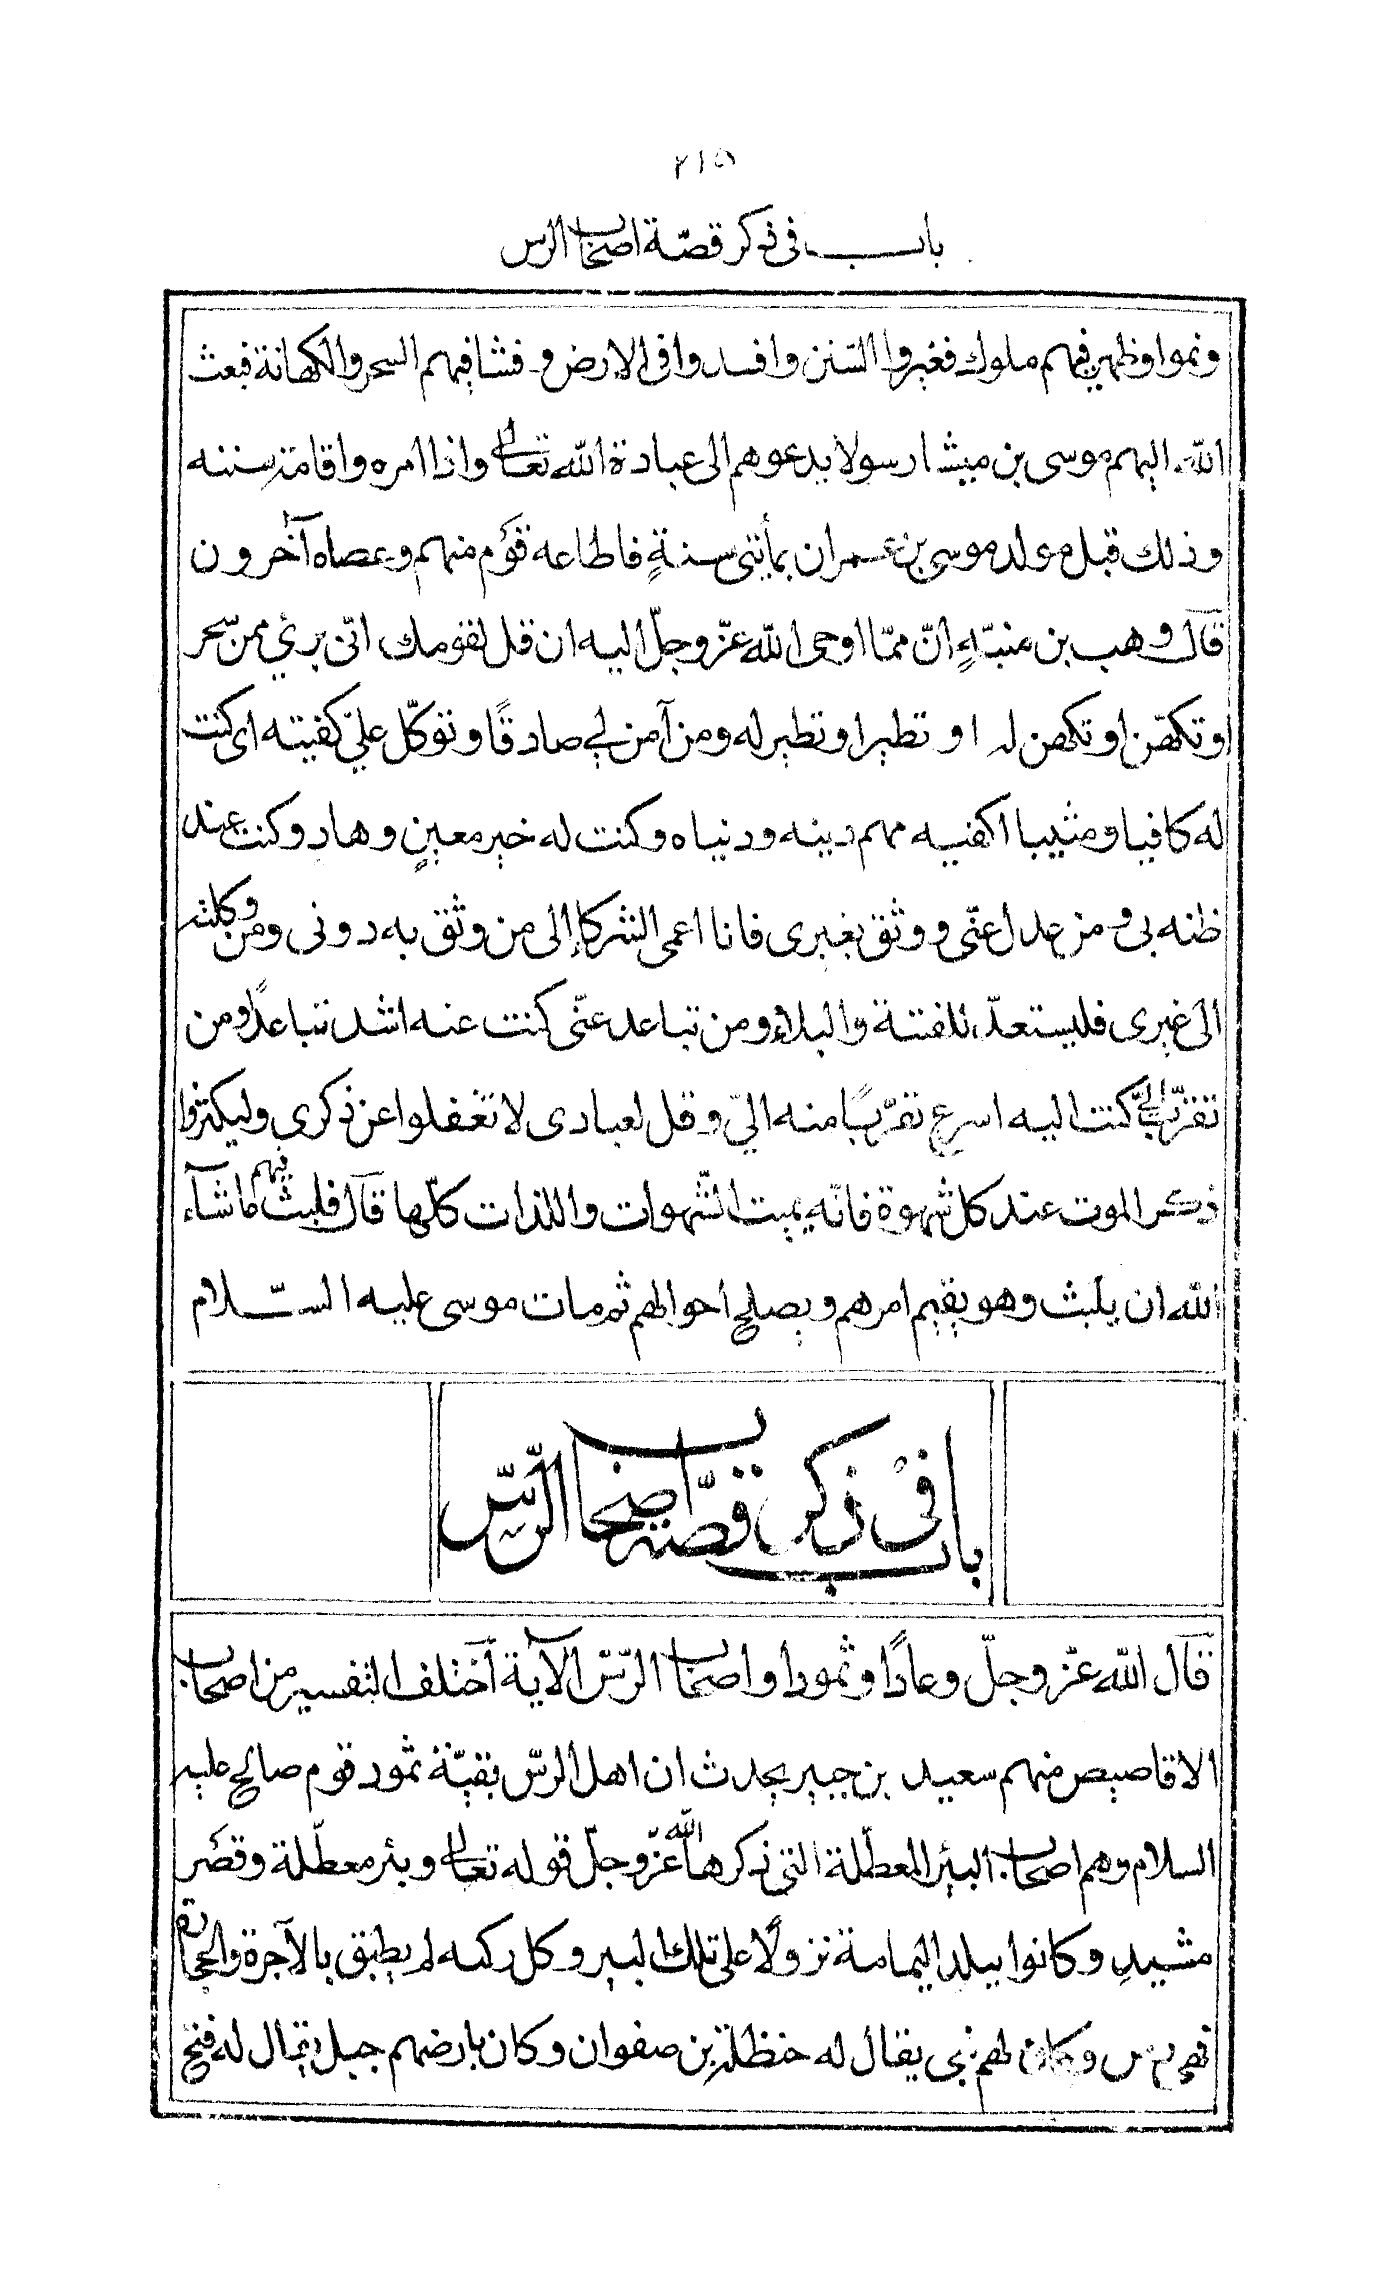 ٢١٥
باب فى ذكر قصّة اصحاب الرس
ونموا وظهر فيهم ملوك فغيروا السّنن وافسدوا فى الارض و فشا فيهم السحر والكهانة فبعث
الله اليهم موسى بن ميشا رسولا يدعوهم الى عبادة الله تعالى واذا امره واقامة سننه
وذلك قبل مولد موسى بن عمران بمأتى سنةٍ فاطاعه قوم منهم وعصاه آخرون
قال وهب بن منبّهٍ انّ ممّا اوحى الله عزّ وجلّ اليه ان قل لقومك انّى برئ ممن سحر
او تكهّن او تكهن له او تطير او تطير له ومن آمن بى صادقًا وتوكّل علىّ كفيته اى كنت
له كافيا ومثيبا اكفيه مهم دينه ودنياه وكنت له خير معينٍ وهاد وكنت عند
ظنه بى و من عدل عنّى ووثق بغيرى فانا اغنى الشركاء الى من وثق به دونى ومن وكلته
الى غيرى فليستعدّ للفتنة والبلاء ومن تباعد عنّى كنت عنه اشد تباعدًا ومن
تقرّب الىّ كنت اليه اسرع تقرّبًا منه الىّ وقل لعبادى لا تغفلوا عن ذكرى وليكثروا
ذكر الموت عند كل شهوة فانّه يميت الشّهوات واللذات كلّها قال فلبث فيهم ما شآء
الله ان يلبث وهو يقيم امرهم ويصلح احوالهم ثم مات موسى عليه السّلام
باب فى ذكر قصّة اصحاب الرّسّ
قال الله عزّ وجلّ وعادًا وثمودا واصحاب الرّسّ الآية اختلف التفسير من اصحاب
الاقاصيص منهم سعيد بن جبير يحدث ان اهل الرسّ بقيّة ثمود قوم صالح عليه
السلام وهم اصحاب البئر المعطّلة التى ذكرها الله عزّ وجلّ قوله تعالى وبئر معطّلة وقصر
مشيد وكانوا ببلد اليمامة نزولًا على تلك البير وكل ركيه لم يطبق بالآجرة والحجارة
فهى رس وكان لهم نبى يقال له حنظلة بن صفوان وكان بارضهم جبل يقال له فتح